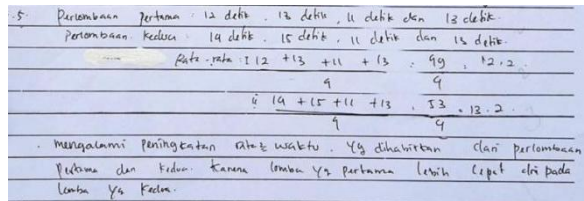 .5. Perlombaan Pertama : 12 detik, 13 detik, 11 detik dan 13 detik.
Perlombaan Kedua : 14 detik, 15 detik, 11 detik dan 13 detik.
Rata-rata : I 12 + 13 + 11 + 13 : 49 , 12.2.
4 4
ii 14 + 15 + 11 + 13 . 53 = 13.2.
4 4
. mengalami peningkatan rata2 waktu. yg dihabiskan dari perlombaan
Pertama dan Kedua. Karena lomba yg pertama lebih cepat dri pada
lomba yg kedua.